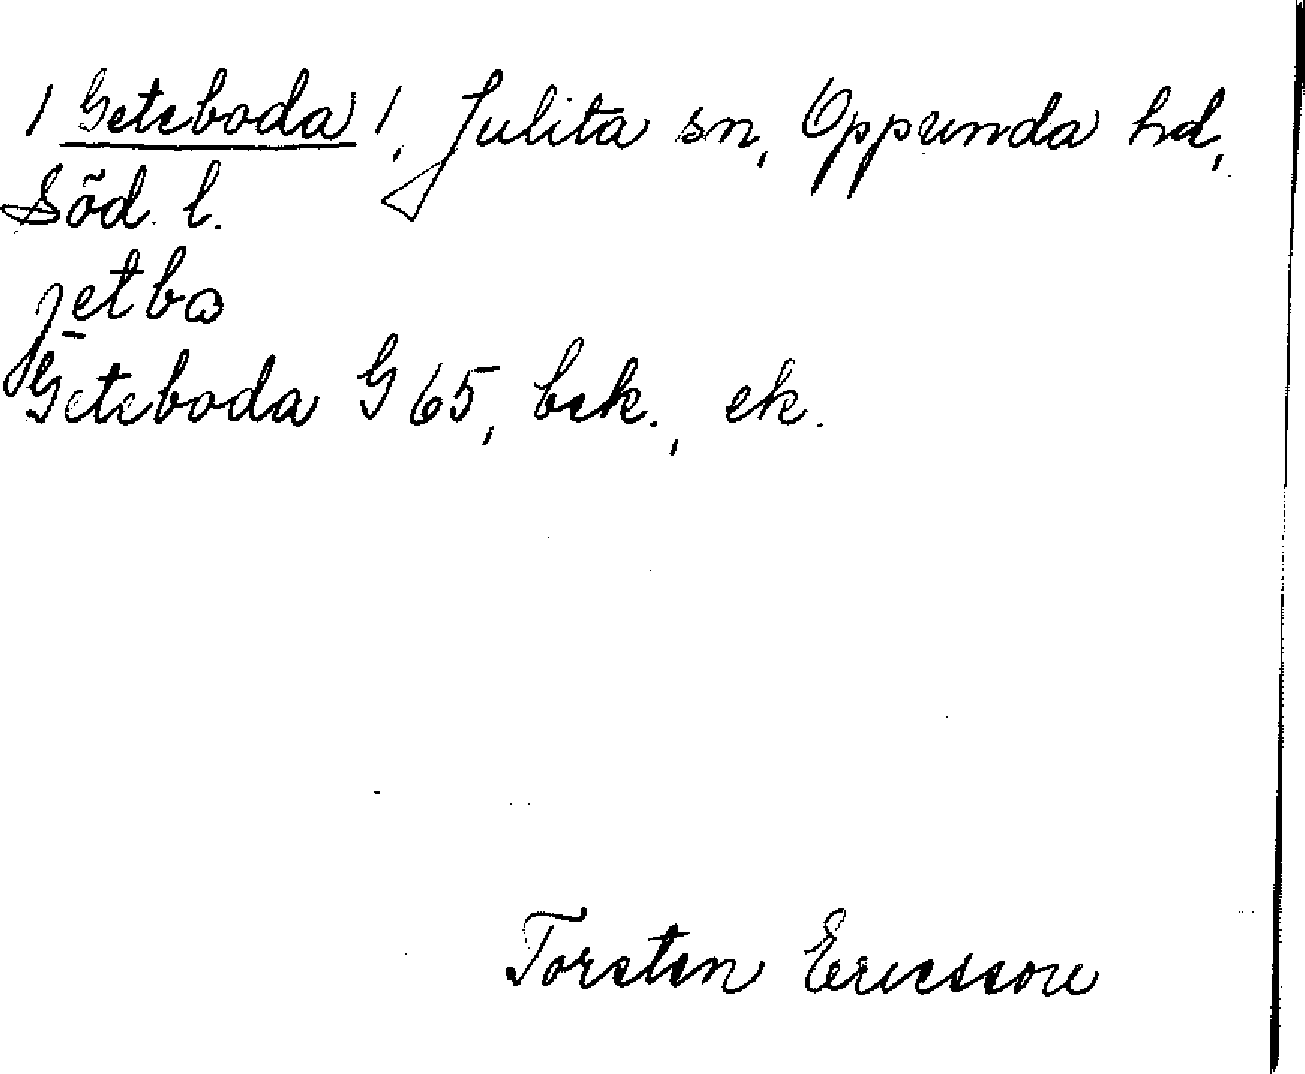 / Geteboda /, Julita sn, Oppunda hd,
Söd. l.
jetbo
Geteboda G 65, bek., ek.
Torsten Ericsson